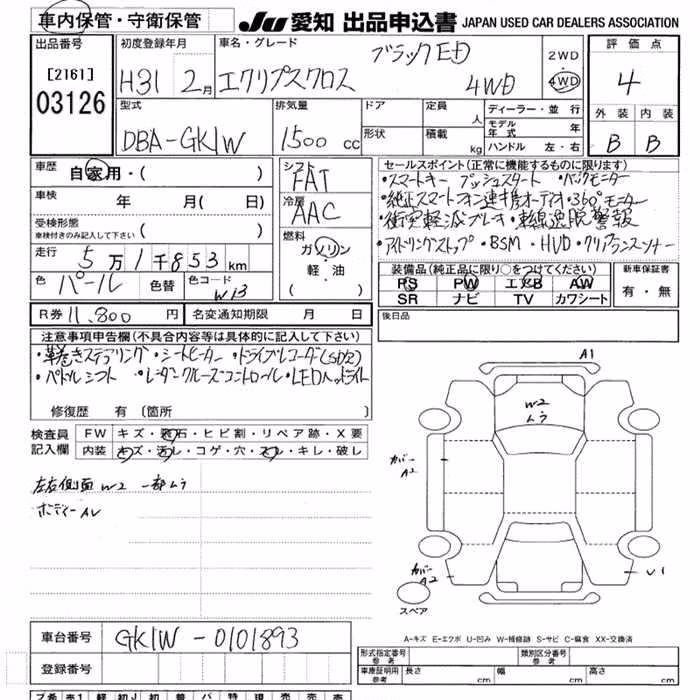 車内保管・守衛保管 JU 愛知 出品申込書 JAPAN USED CAR DEALERS ASSOCIATION
出品番号 初度登録年月 車名・グレード 評価点
[2161] 03126 H31 2月 エクリプスクロス ブラックED 4WD 2WD 4WD 4
外装 内装
B B
型式 排気量 ドア 定員 人 ディーラー・並行
DBA-GK1W 1500 cc 形状 積載 kg モデル年式 年
ハンドル 左・右
車歴 自家用・( ) シフト FAT
車検 年 月( 日) 冷房 AAC
受検形態
車検付きのみ記入して下さい ( )
燃料 ガソリン・軽油 ( )
走行 5万1千853km
色 パール 色替 色コード W13
R券 11,800 円 名変通知期限 月 日
セールスポイント(正常に機能するものに限ります)
・スマートキー プッシュスタート ・バックモニター
・純正スマートフォン連携オーディオ・360°モニター
・衝突軽減ブレーキ ・車線逸脱警報
・アイドリングストップ ・BSM ・HUD ・クリアランスソナー
装備品(純正品に限り○をつけてください) 新車保証書
PS PW エアB AW 有・無
SR ナビ TV カワシート
後日品
注意事項申告欄(不具合内容等は具体的に記入して下さい)
・革巻きステアリング ・シートヒーター ・ドライブレコーダ(SD欠)
・パドルシフト ・レーダークルーズコントロール ・LEDヘッドライト
修復歴 有 〔箇所 〕
検査員記入欄 FW キズ・飛石・ヒビ割・リペア跡・X要
内装 キズ・汚レ・コゲ・穴・スレ・キレ・破レ
左右側面 W2 一部ムラ
ボディー AU
A1
W2
ムラ
カバー
A2
カバー
A2
U1
スペア
A-キズ E-エクボ U-凹み W-補修跡 S-サビ C-腐食 XX-交換済
車台番号 GK1W-0101893
登録番号
形式指定番号 参考 類別区分番号 参考
車庫証明用 参考 長さ cm 幅 cm 高さ cm